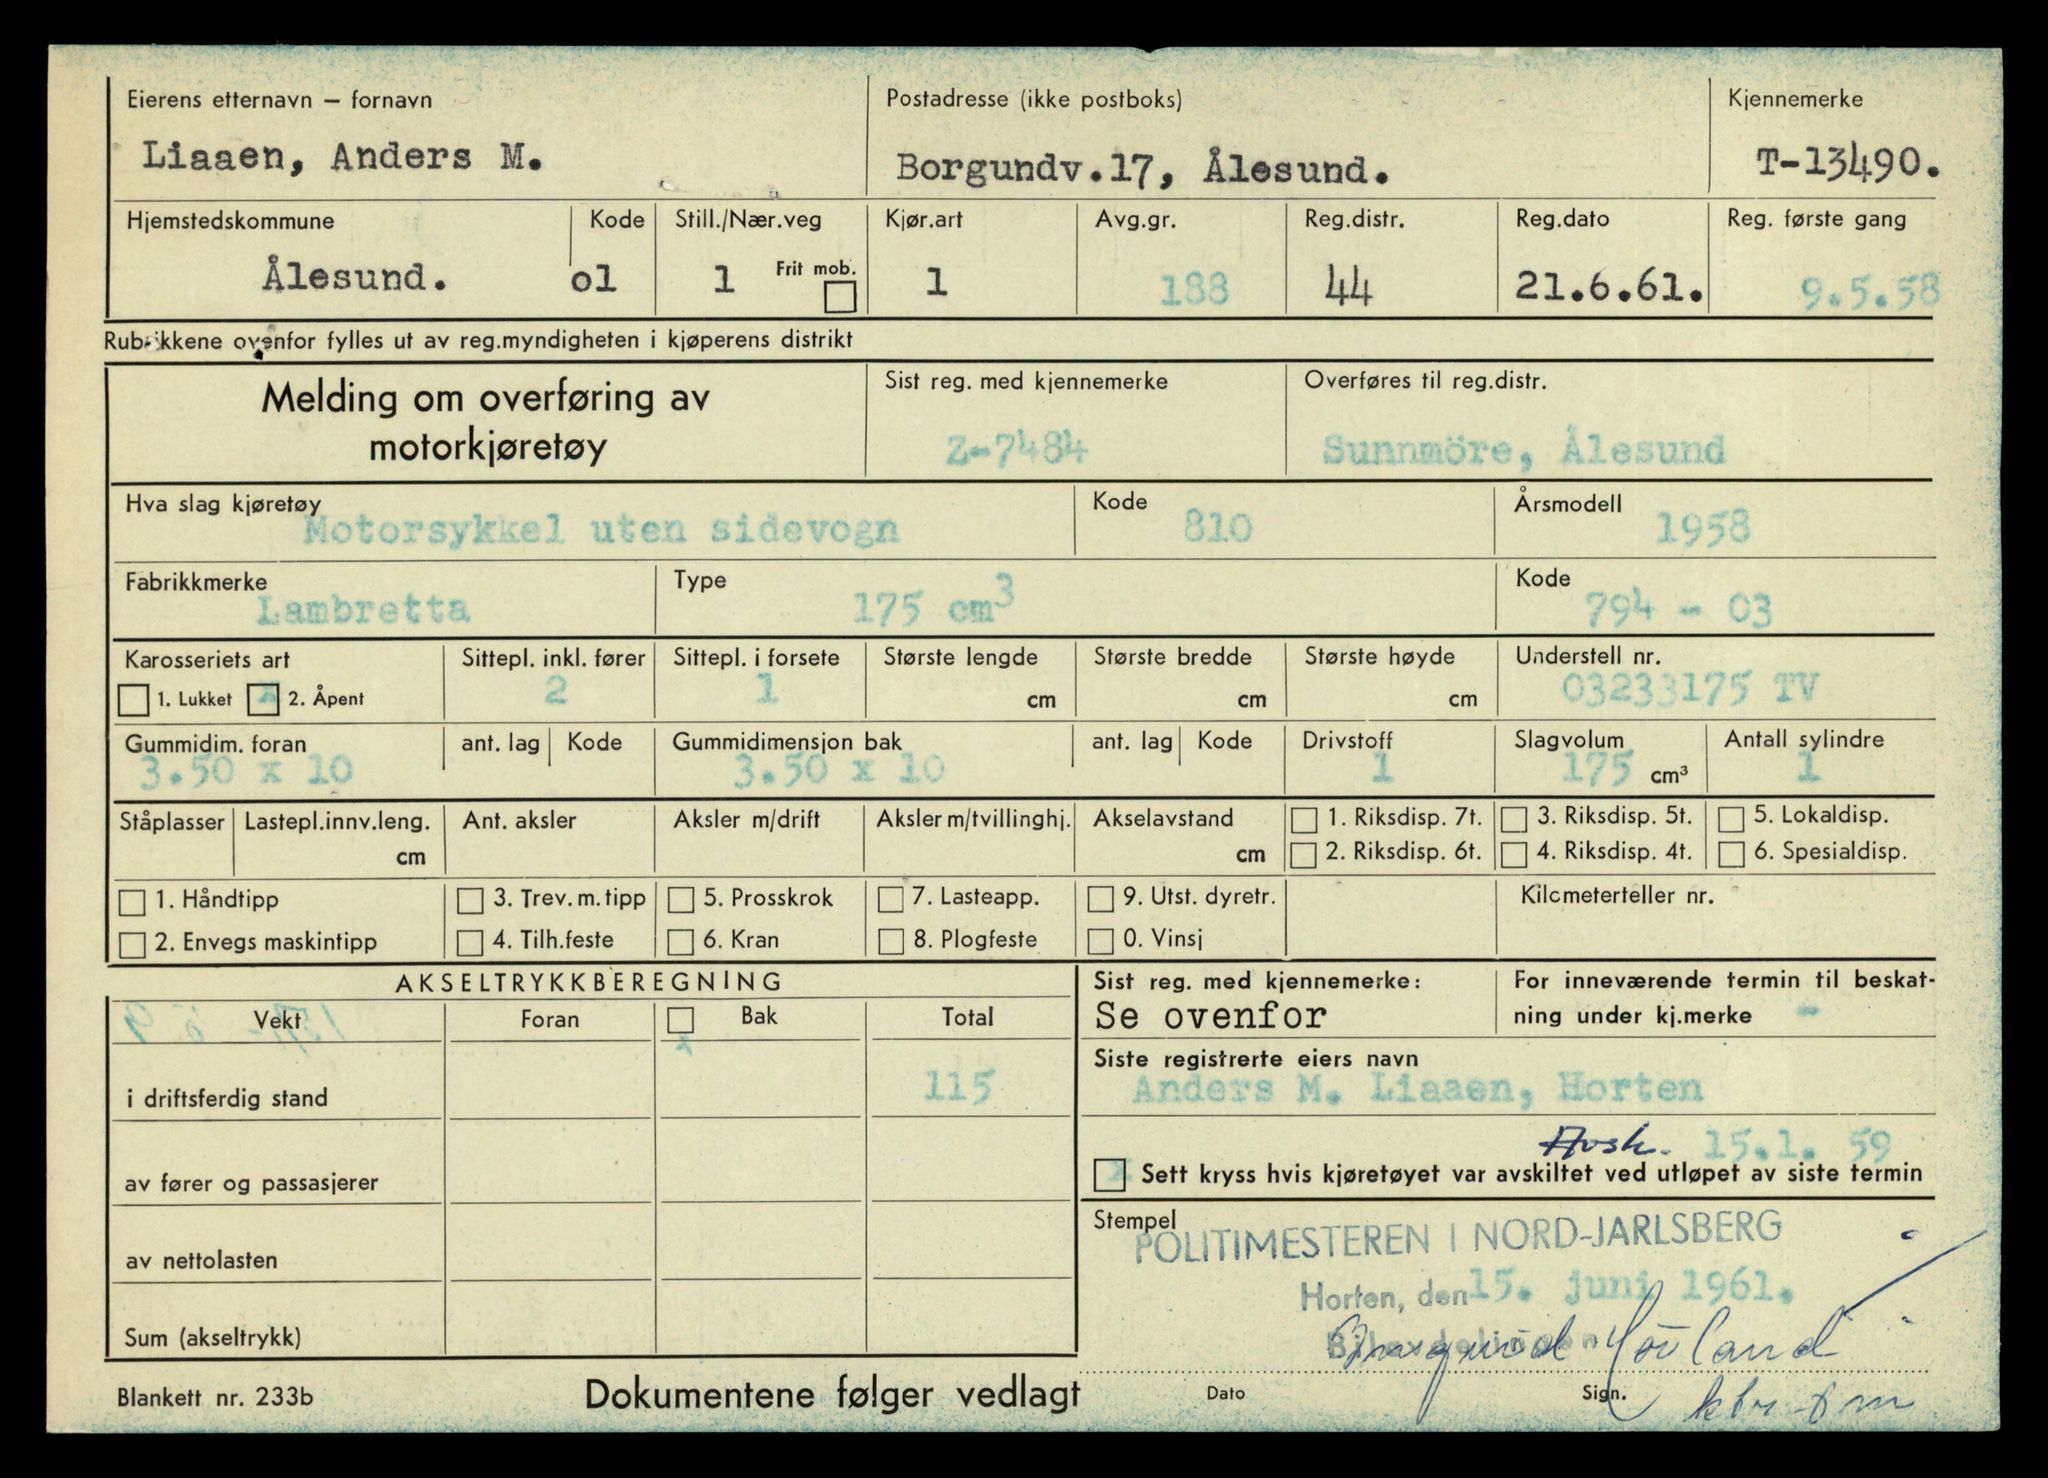 Eierens etternavn – fornavn Postadresse (ikke postboks) Kjennemerke
Liaaen, Anders M. Borgundv.17, Ålesund. T-13490.
Hjemstedskommune Kode Still./Nær.veg Kjør.art Avg.gr. Reg.distr. Reg.dato Reg. første gang
Ålesund. 01 1 Frit mob. 1 188 44 21.6.61. 9.5.58
Rubrikkene ovenfor fylles ut av reg.myndigheten i kjøperens distrikt
Melding om overføring av Sist reg. med kjennemerke Overføres til reg.distr.
motorkjøretøy Z-7484 Sunnmöre, Ålesund
Hva slag kjøretøy Kode Årsmodell
Motorsykkel uten sidevogn 810 1958
Fabrikkmerke Type Kode
Lambretta 175 cm3 794 - 03
Karosseriets art Sittepl. inkl. fører Sittepl. i forsete Største lengde Største bredde Største høyde Understell nr.
1. Lukket x 2. Åpent 2 1 cm cm cm 03233175 TV
Gummidim. foran ant. lag Kode Gummidimensjon bak ant. lag Kode Drivstoff Slagvolum Antall sylindre
3.50 x 10 3.50 x 10 1 175 cm³ 1
Ståplasser Lastepl.innv.leng. Ant. aksler Aksler m/drift Aksler m/tvillinghj. Akselavstand 1. Riksdisp. 7t. 3. Riksdisp. 5t. 5. Lokaldisp.
cm cm 2. Riksdisp. 6t. 4. Riksdisp. 4t. 6. Spesialdisp.
1. Håndtipp 3. Trev. m. tipp 5. Prosskrok 7. Lasteapp. 9. Utst. dyretr. Kilometerteller nr.
2. Envegs maskintipp 4. Tilh.feste 6. Kran 8. Plogfeste 0. Vinsj
AKSELTRYKKBEREGNING Sist reg. med kjennemerke: For inneværende termin til beskat-
Vekt Foran Bak Total Se ovenfor ning under kj.merke -
x
Siste registrerte eiers navn
i driftsferdig stand 115 Anders M. Liaaen, Horten
Avsk. 15.1. 59
av fører og passasjerer x Sett kryss hvis kjøretøyet var avskiltet ved utløpet av siste termin
Stempel
POLITIMESTEREN I NORD-JARLSBERG
av nettolasten
Horten, den 15. juni 1961.
Sum (akseltrykk) Bilavdelingen
Blankett nr. 233b Dokumentene følger vedlagt Dato Sign.